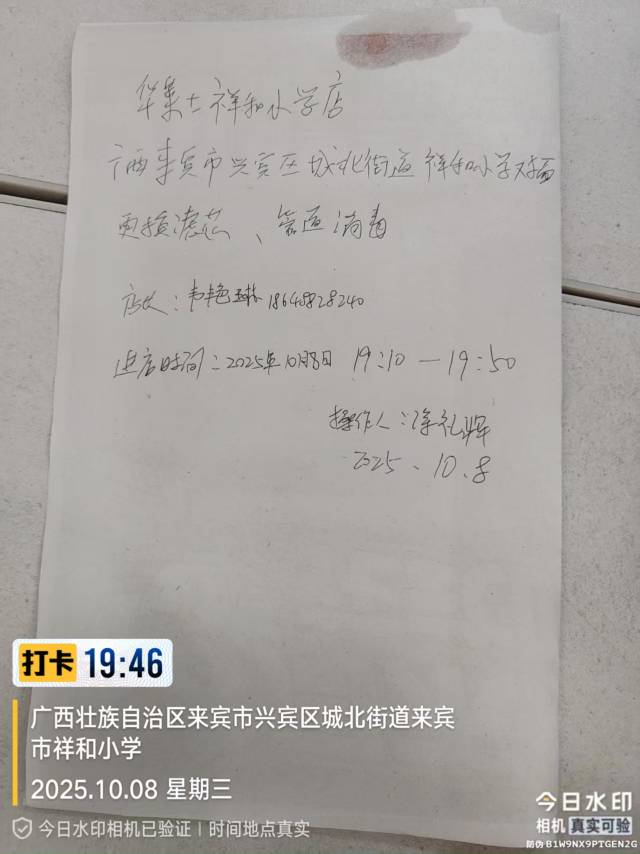 华莱士祥和小学店
广西来宾市兴宾区城北街道祥和小学对面
更换滤芯、管道消毒
店长：韦艳琳 18648828240
进店时间：2025年10月8日 19:10—19:50
操作人：徐礼辉
2025.10.8
打卡 19:46
广西壮族自治区来宾市兴宾区城北街道来宾
市祥和小学
2025.10.08 星期三
今日水印相机已验证｜时间地点真实
今日水印
相机 真实可验
防伪 B1W9NX9PTGEN2G